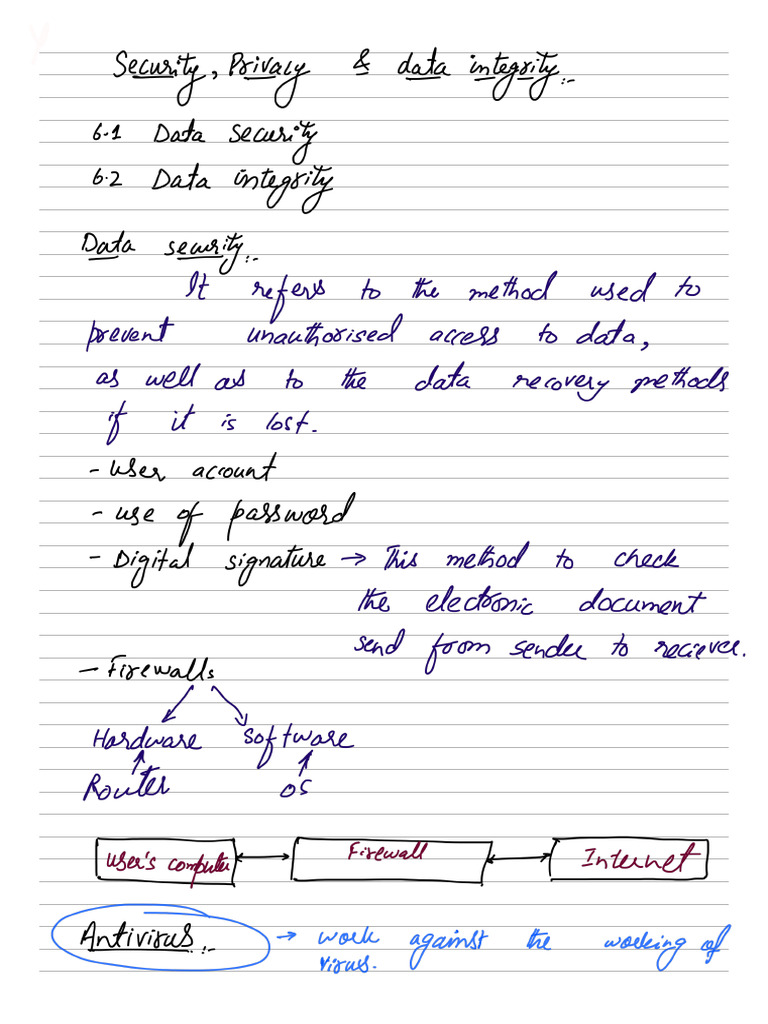 Security, Privacy & data integrity:-
6.1 Data security
6.2 Data integrity
Data security:-
It refers to the method used to
prevent unauthorised access to data,
as well as to the data recovery methods
if it is lost.
- User account
- use of password
- Digital signature → This method to check
the electronic document
send from sender to reciever.
- Firewalls
Hardware Software
Router OS
User's computer Firewall Internet
Antivirus:- → work against the working of
virus.